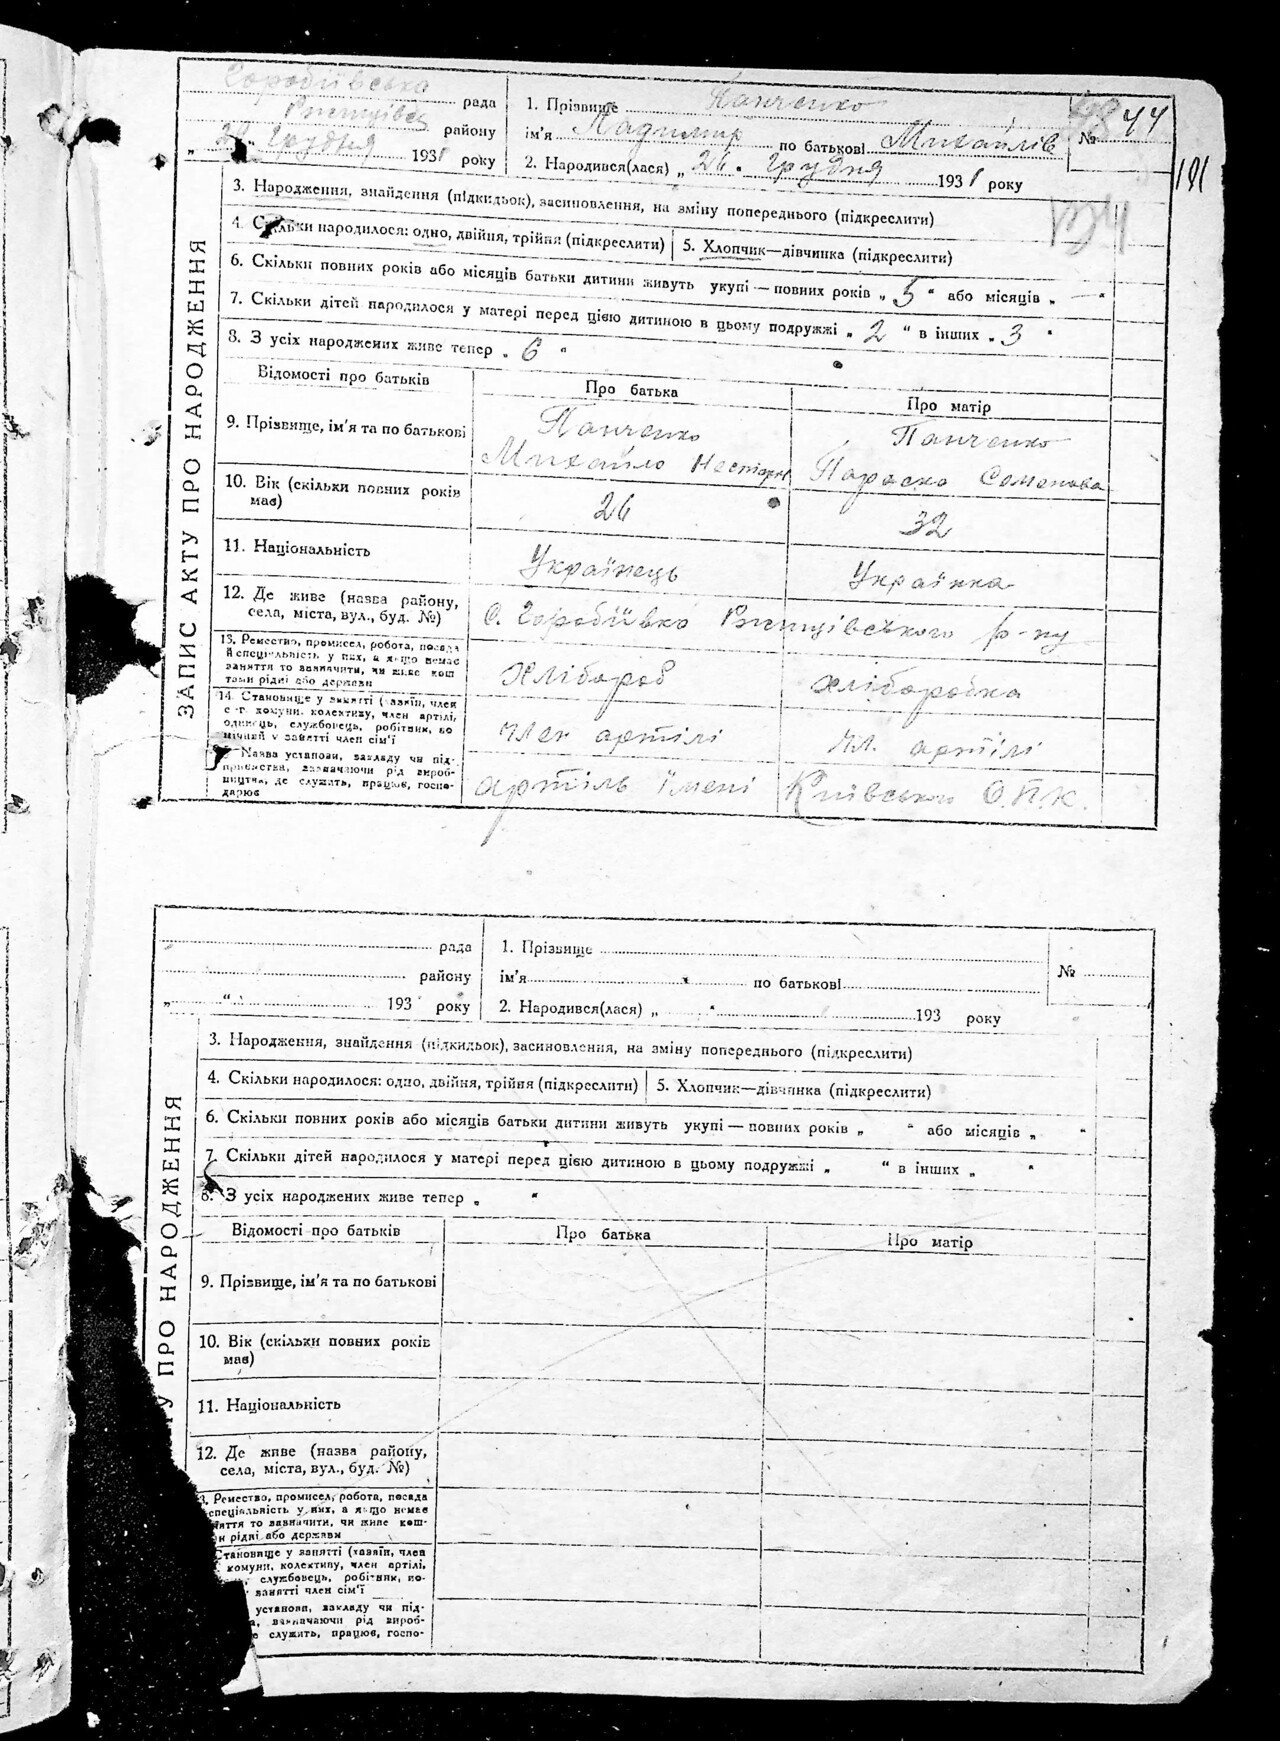 Горобіївська рада
Ржищівськ району
" " Грудня 1931 року
1. Прізвище Панченко
ім'я по батькові Михайлів
2. Народився(лася) „ 26 " Грудня 1931 року
№ 44
191
ЗАПИС АКТУ ПРО НАРОДЖЕННЯ
3. Народження, знайдення (підкидьок), засиновлення, на зміну попереднього (підкреслити)
4. Скільки народилося: одно, двійня, трійня (підкреслити) 5. Хлопчик—дівчинка (підкреслити)
6. Скільки повних років або місяців батьки дитини живуть укупі — повних років „ 5 " або місяців „ — "
7. Скільки дітей народилося у матері перед цією дитиною в цьому подружжі „ 2 " в інших „ 3 "
8. З усіх народжених живе тепер „ 6 "
Відомості про батьків Про батька Про матір
9. Прізвище, ім'я та по батькові
Панченко Михайло
Панченко Параска Семенова
10. Вік (скільки повних років має) 26 32
11. Національність Українець Українка
12. Де живе (назва району,
села, міста, вул., буд. №) с. Горобіївка Ржищівського р-ну
13. Ремество, промисел, робота, посада
й спеціяльність у них, а якщо немає
заняття то зазначити, чи живе кош
тами рідні або держави
хлібороб хліборобка
14. Становище у занятті (хазяїн, член
с.-г. комуни, колективу, член артілі,
одинець, службовець, робітник, по
мічний у занятті член сім'ї
член артілі чл. артілі
Назва установи, закладу чи під-
приємства, зазначаючи рід вироб-
ництва, де служить, працює, госпо-
дарює
артіль імені Київського О.П.К.
рада
району
„ " 193 року
1. Прізвище
ім'я по батькові
2. Народився(лася) „ " 193 року
№
У ПРО НАРОДЖЕННЯ
3. Народження, знайдення (підкидьок), засиновлення, на зміну попереднього (підкреслити)
4. Скільки народилося: одно, двійня, трійня (підкреслити) 5. Хлопчик—дівчинка (підкреслити)
6. Скільки повних років або місяців батьки дитини живуть укупі — повних років „ " або місяців „ "
7. Скільки дітей народилося у матері перед цією дитиною в цьому подружжі „ " в інших „ "
8. З усіх народжених живе тепер „ "
Відомості про батьків Про батька Про матір
9. Прізвище, ім'я та по батькові
10. Вік (скільки повних років
має)
11. Національність
12. Де живе (назва району,
села, міста, вул., буд. №)
3. Ремество, промисел, робота, посада
спеціяльність у них, а якщо немає
няття то зазначити, чи живе кош-
и рідні або держави
Становище у занятті (хазяїн, член
комуни, колективу, член артілі,
службовець, робітник, по-
занятті член сім'ї
установи, закладу чи під-
а, зазначаючи рід вироб-
е служить, працює, госпо-